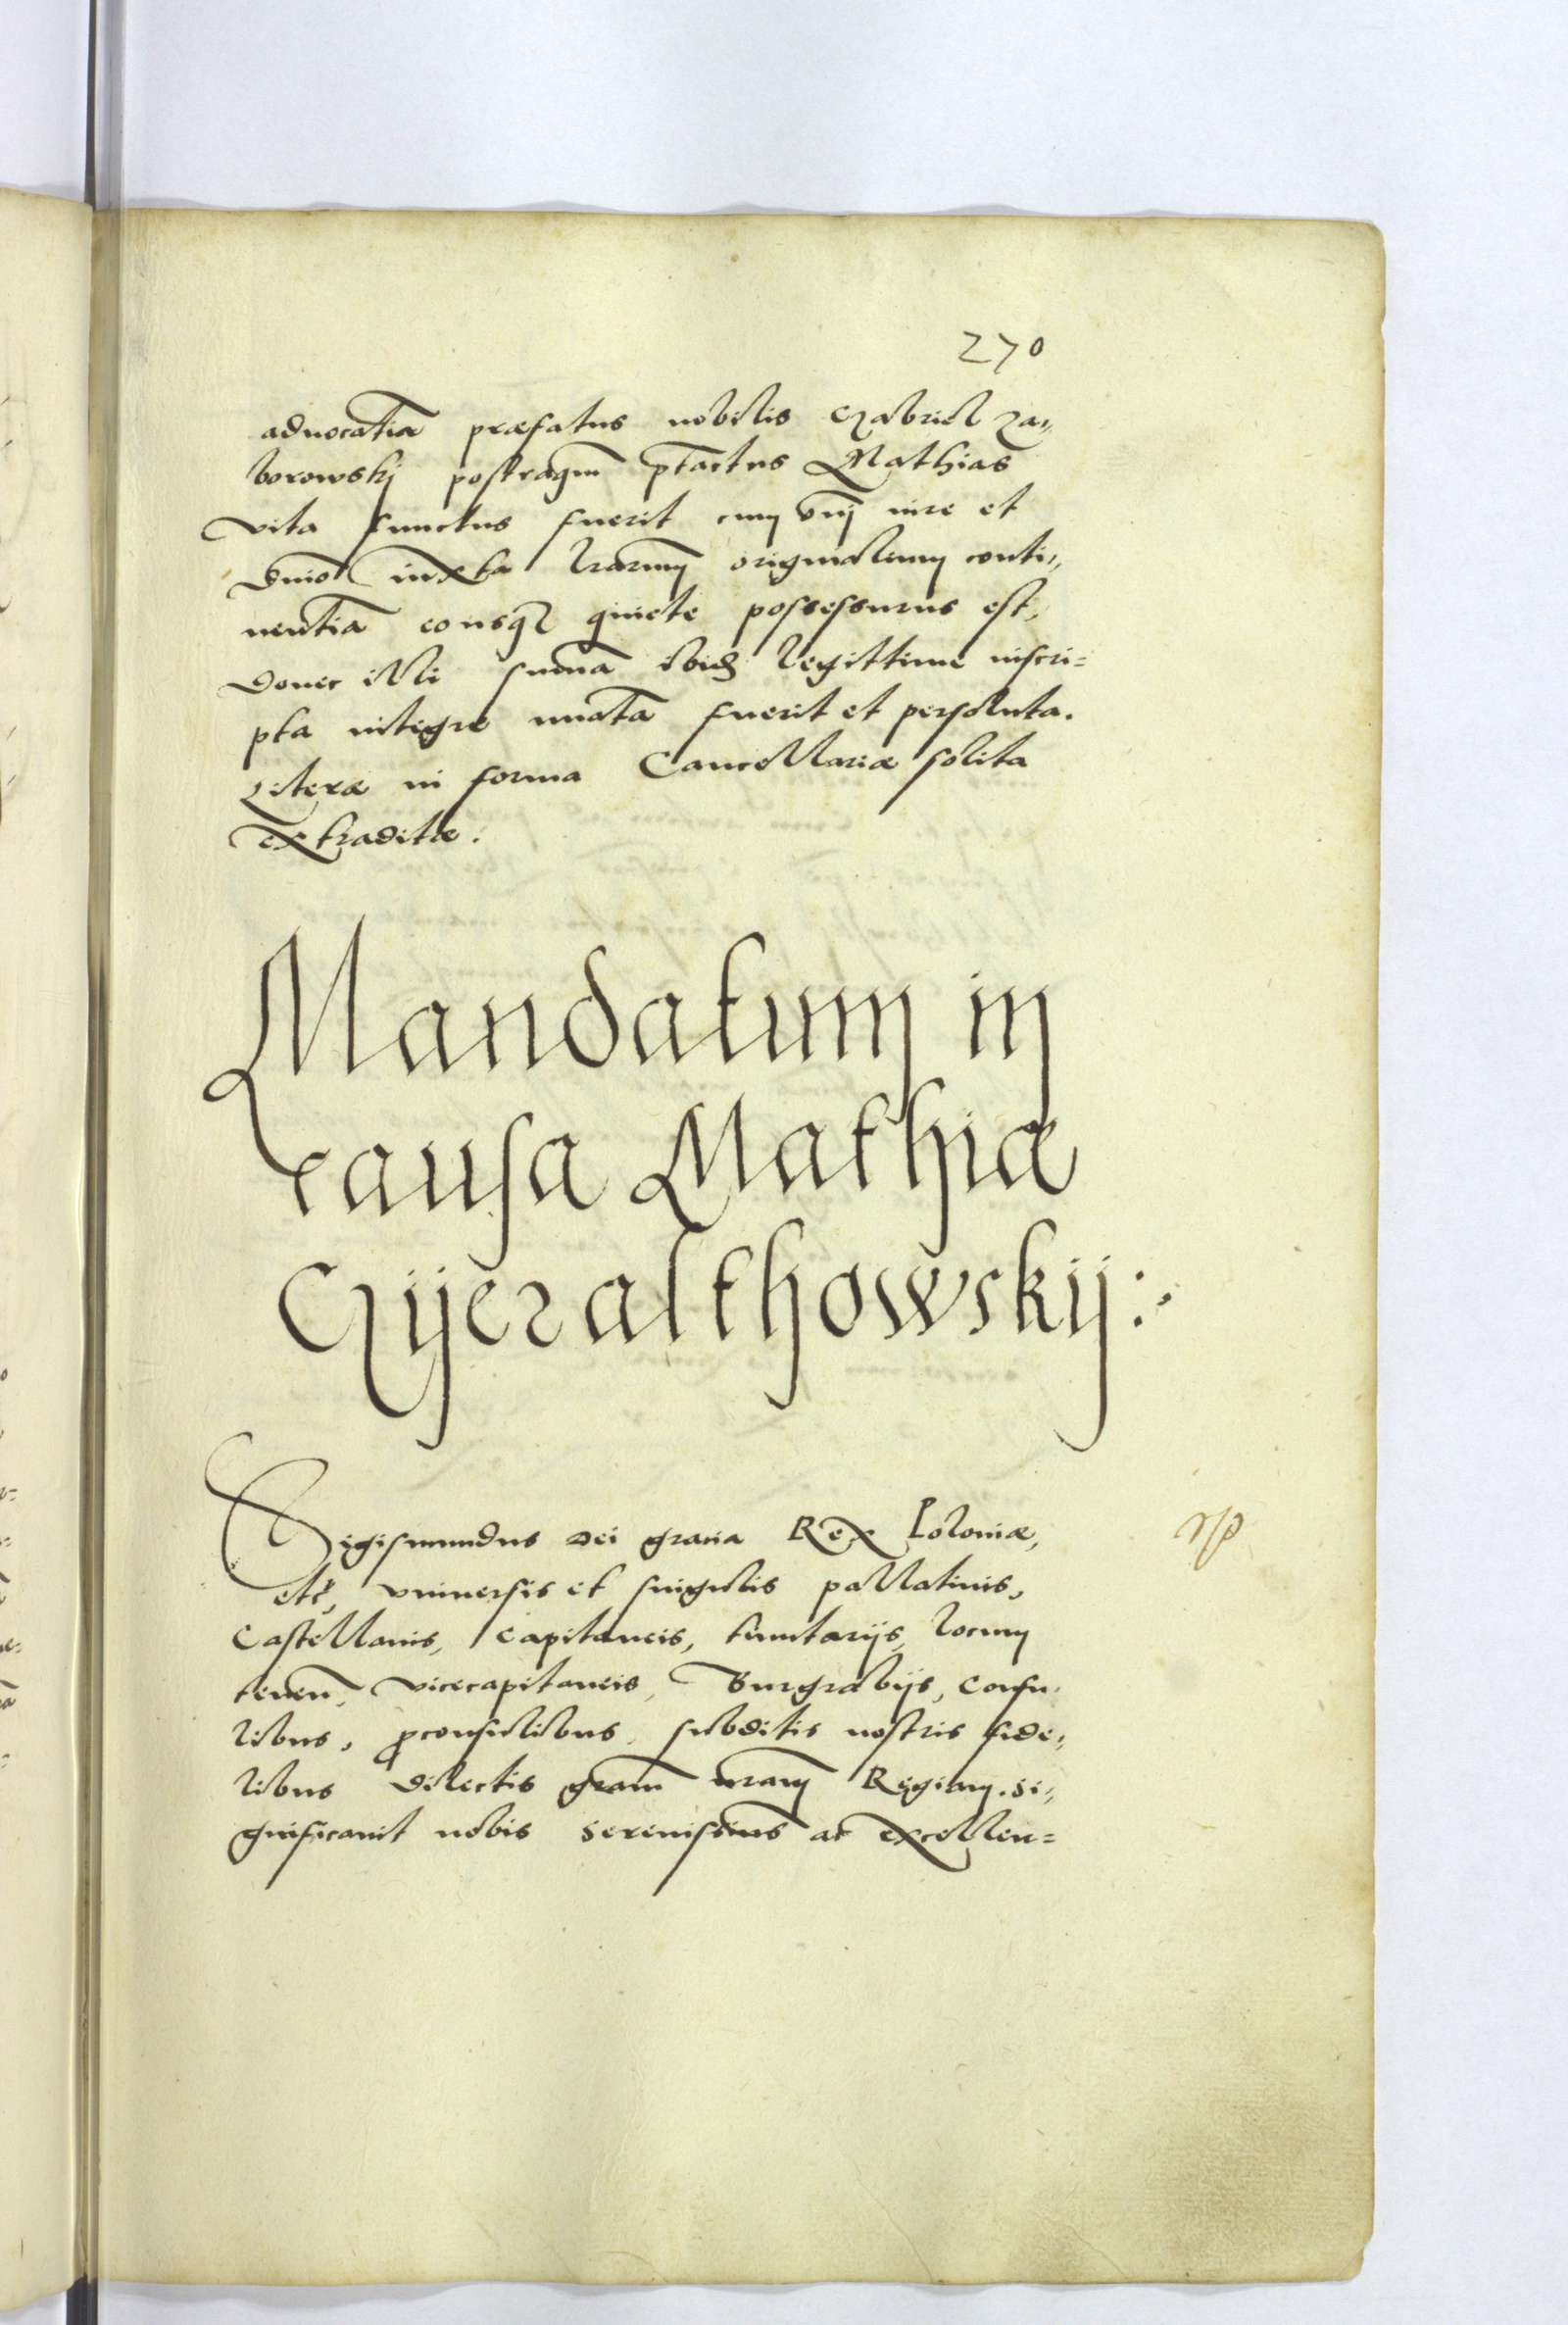 270
aduocatiā præfatus nobilis Gabriel Za„
borowskj postraqm̄ p̄tactus Mathias
vita functus fuerit cum om̄j iure et
dn̄io iuxta l̄rarum originalium conti„
nentiā eousq₃ quiete possessurus est,
donec illi sum̄a ibid₃ legittime inscri=
pta integre nūata fuerit et persoluta.
Literæ in forma Cancellariæ solita
extraditæ.
Mandatum in
causa Mathiæ
Gijeralthowskij:
Sigismundus Dei gracia Rex Poloniæ,
etc̄, vniuersis et singulis pallatinis,
Castellanis, Capitaneis, locum
tenen̄, vicecapitaneis, Burgrabijs, Consu„
libus, ꝓconsulibus, subditis nostris fide„
libus dilectis gr̄am nr̄am Regiam. Si„
gnificauit nobis Serenissim̄us ac excellen=